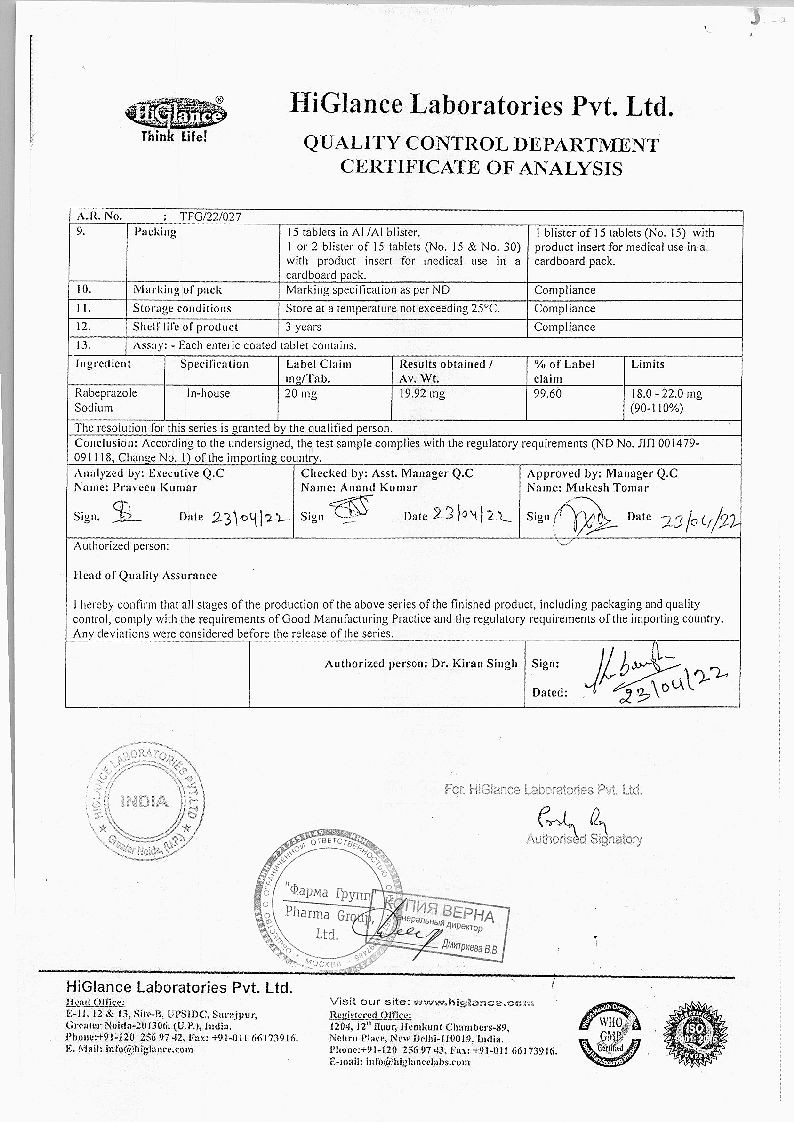 HiGlance®
Think Life!
HiGlance Laboratories Pvt. Ltd.
QUALITY CONTROL DEPARTMENT
CERTIFICATE OF ANALYSIS
A.R. No. : TFG/22/027
9. Packing 15 tablets in Al /Al blister. 1 blister of 15 tablets (No. 15) with
1 or 2 blister of 15 tablets (No. 15 & No. 30) product insert for medical use in a
with product insert for medical use in a cardboard pack.
cardboard pack.
10. Marking of pack Marking specification as per ND Compliance
11. Storage conditions Store at a temperature not exceeding 25°C. Compliance
12. Shelf life of product 3 years Compliance
13. Assay: - Each enteric coated tablet contains.
Ingredient Specification Label Claim Results obtained / % of Label Limits
mg/Tab. Av. Wt. claim
Rabeprazole In-house 20 mg 19.92 mg 99.60 18.0 - 22.0 mg
Sodium (90-110%)
The resolution for this series is granted by the qualified person.
Conclusion: According to the undersigned, the test sample complies with the regulatory requirements (ND No. ЛП 001479-
091118, Change No. 1) of the importing country.
Analyzed by: Executive Q.C Checked by: Asst. Manager Q.C Approved by: Manager Q.C
Name: Praveen Kumar Name: Anand Kumar Name: Mukesh Tomar
Sign. Date 23/04/22 Sign Date 23/04/22 Sign Date 23/04/22
Authorized person:
Head of Quality Assurance
I hereby confirm that all stages of the production of the above series of the finished product, including packaging and quality
control, comply with the requirements of Good Manufacturing Practice and the regulatory requirements of the importing country.
Any deviations were considered before the release of the series.
Authorized person: Dr. Kiran Singh Sign:
Dated: 23/04/22
HIGLANCE LABORATORIES PVT. LTD
INDIA
Greater Noida, (U.P.)
For. HiGlance Laboratories Pvt. Ltd.
Authorised Signatory
ОТВЕТСТВЕННОСТЬЮ
МОСКВА
"Фарма Групп"
Pharma Group,
Ltd.
КОПИЯ ВЕРНА
Генеральный директор
Дмитриева В.В
HiGlance Laboratories Pvt. Ltd.
Head Office:
E-11, 12 & 13, Site-B, UPSIDC, Surajpur,
Greater Noida-201306. (U.P.), India.
Phone:+91-120 256 97 42, Fax: +91-011 66173916.
E. Mail: info@higlance.com
Visit our site: www.higlance.com
Registered Office:
1204, 12th floor, Hemkunt Chambers-89,
Nehru Place, New Delhi-110019, India.
Phone:+91-120 256 97 43, Fax: +91-011 66173916.
E-mail: info@higlancelabs.com
WHO
GMP
Certified
ISO